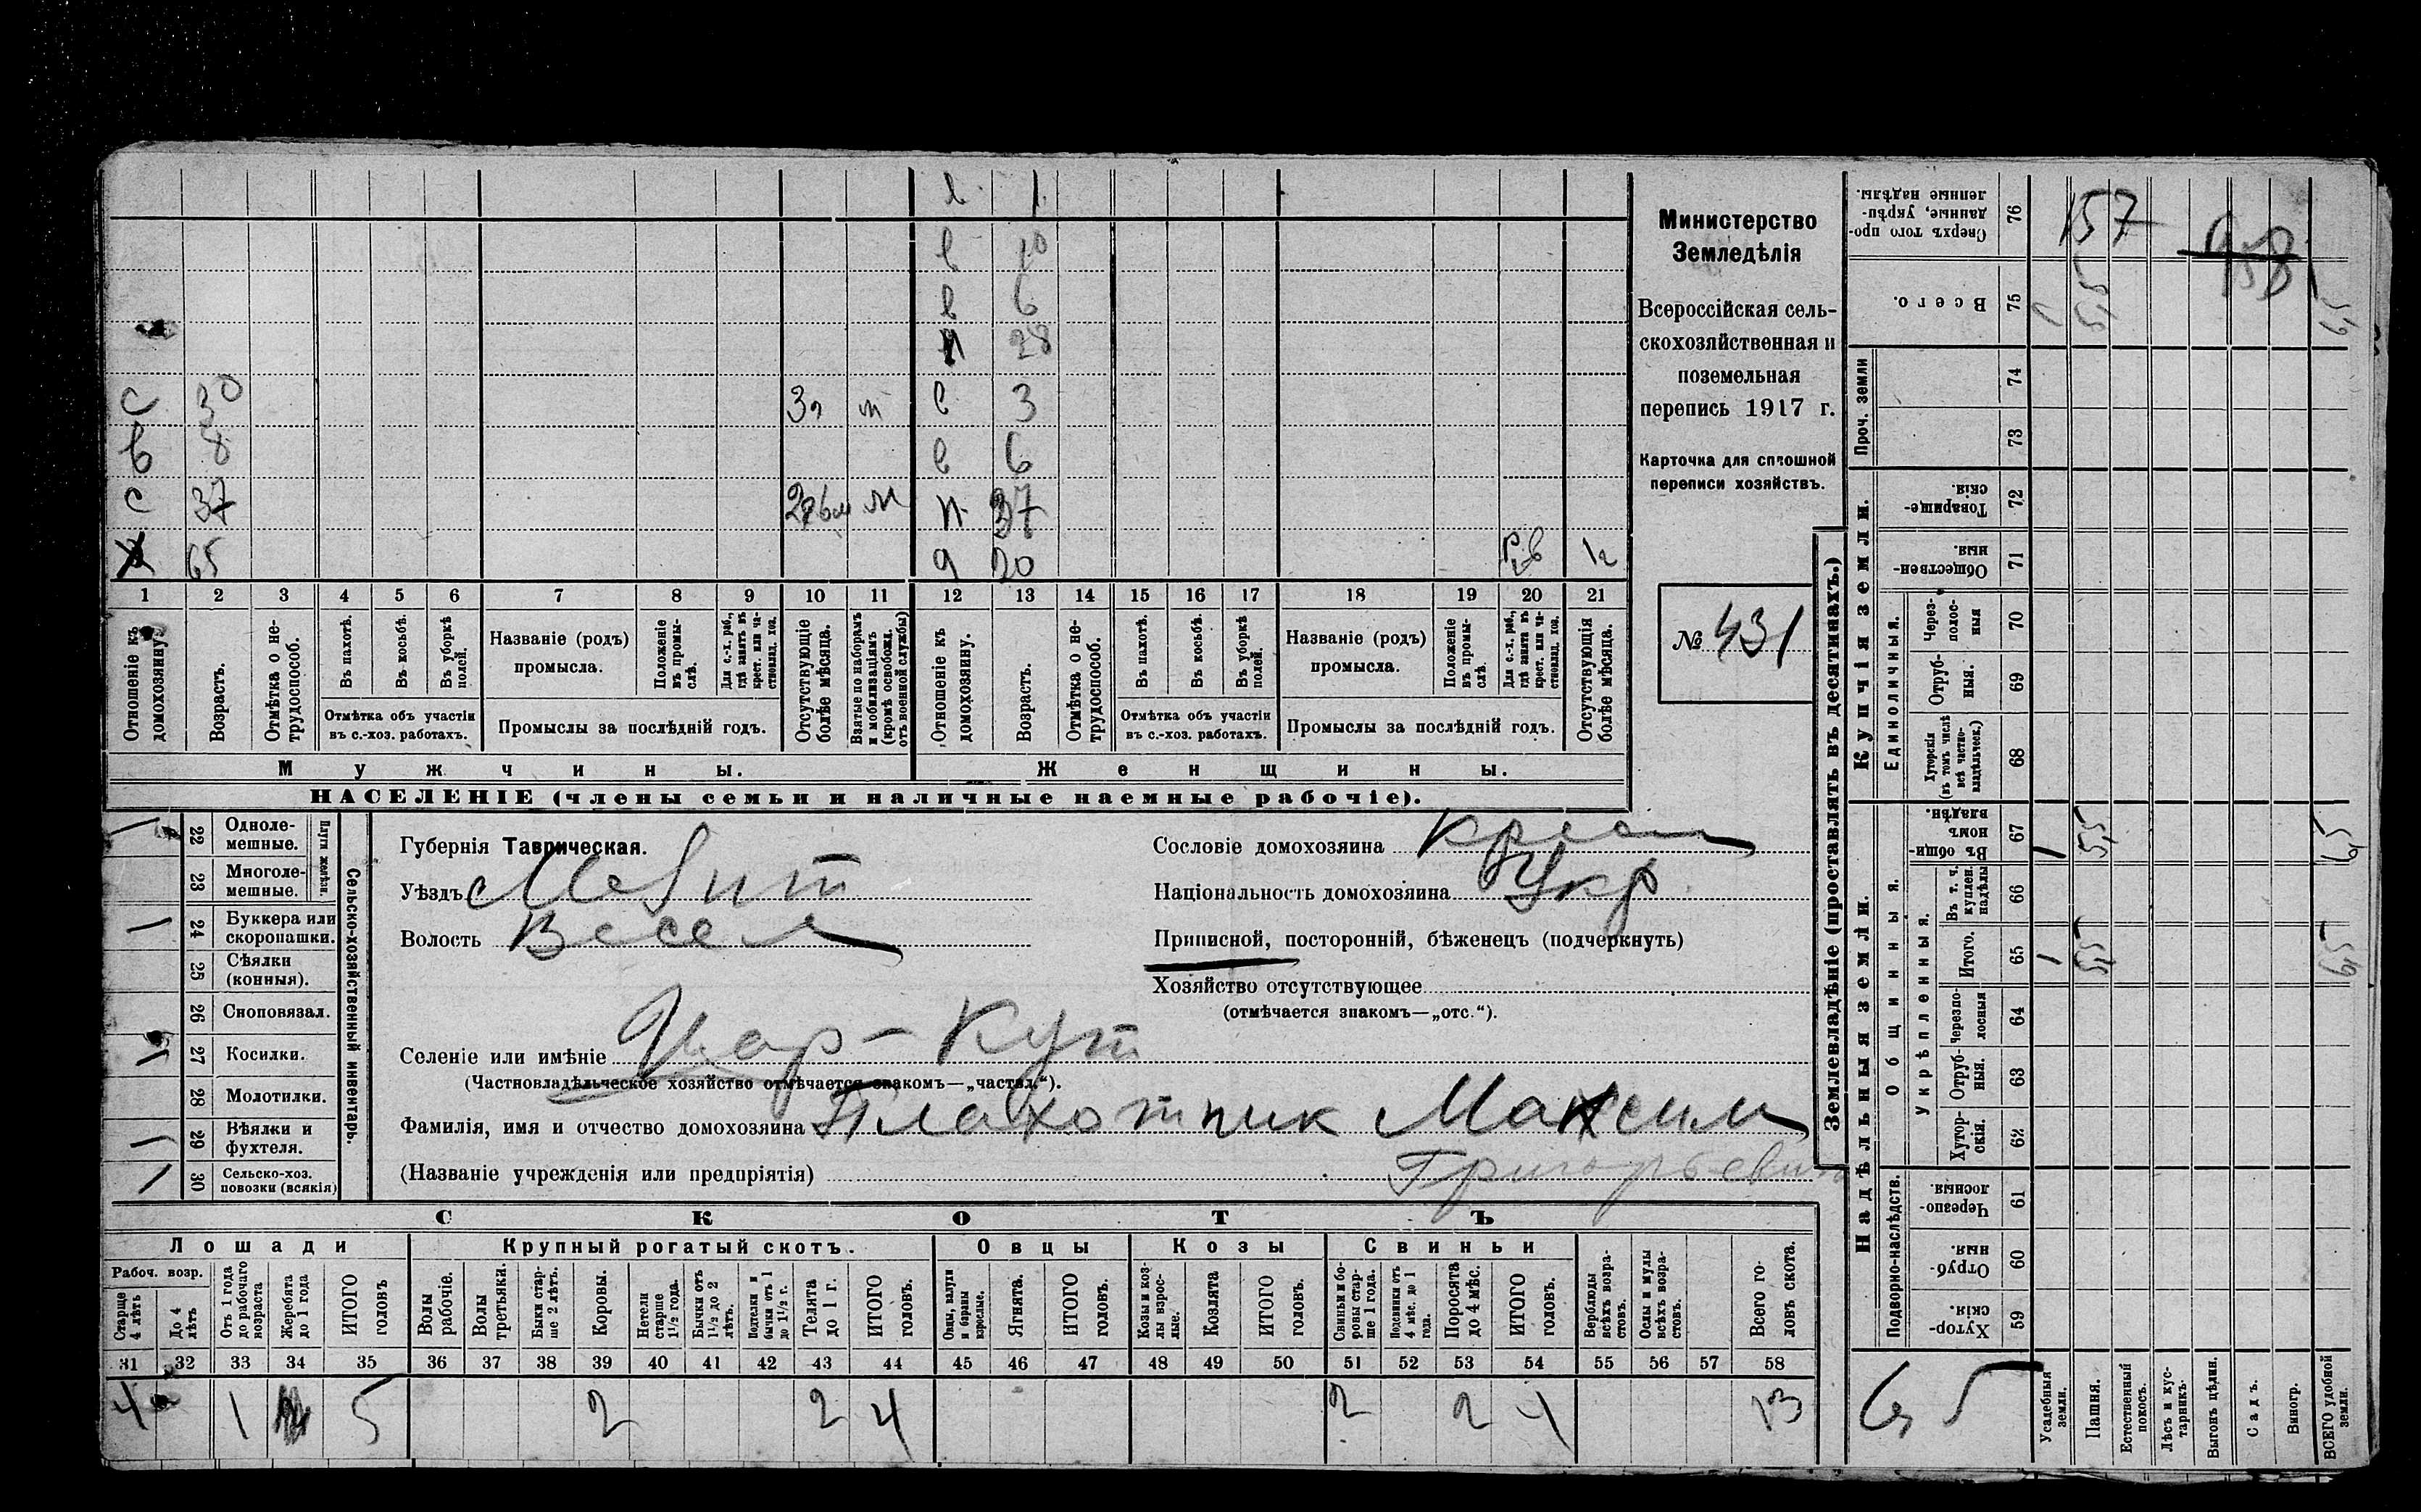 Министерство
Земледѣлія
Всероссійская сель-
скохозяйственная и
поземельная
перепись 1917 г.
Карточка для сплошной
переписи хозяйствъ.
№ 431
л 1
в 10
в 6
п 28
с 30 3 м в 3
в 8 в 6
с 37 м п 37
65 д 20
1 2 3 4 5 6 7 8 9 10 11 12 13 14 15 16 17 18 19 20 21
Отношеніе къ домохозяину.
Возрастъ.
Отмѣтка о не-трудоспособ.
Въ пахотѣ.
Въ косьбѣ.
Въ уборкѣ полей.
Отмѣтка объ участіи
въ с.-хоз. работахъ.
Названіе (родъ)
промысла.
Положеніе въ промы-слѣ.
Для с.-х. раб., гдѣ занятъ въ крест. или ча-стновлад. хоз.
Промыслы за послѣдній годъ.
Отсутствующіе болѣе мѣсяца.
Взятые по наборамъ и мобилизаціямъ (кромѣ освобожд. отъ военной службы)
Отношеніе къ домохозяину.
Возрастъ.
Отмѣтка о не-трудоспособ.
Въ пахотѣ.
Въ косьбѣ.
Въ уборкѣ полей.
Отмѣтка объ участіи
въ с.-хоз. работахъ.
Названіе (родъ)
промысла.
Положеніе въ промы-слѣ.
Для с.-х. раб., гдѣ занятъ въ крест. или ча-стновлад. хоз.
Промыслы за послѣдній годъ.
Отсутствующія болѣе мѣсяца.
Мужчины.
Женщины.
НАСЕЛЕНІЕ (члены семьи и наличные наемные рабочіе).
Губернія Таврическая.
Уѣздъ Мелит
Волость Весел
Селеніе или имѣніе Цар-Кут
(Частновладѣльческое хозяйство отмѣчается знакомъ—„частвл.“).
Фамилія, имя и отчество домохозяина Плахотник Максим
Григорьевич
(Названіе учрежденія или предпріятія)
Сословіе домохозяина Крест
Національность домохозяина Укр
Приписной, посторонній, бѣженецъ (подчеркнуть)
Хозяйство отсутствующее
(отмѣчается знакомъ—„отс.“).
Сельско-хозяйственный инвентарь.
Плуги желѣзн.
1 22 Одноле-мешные.
23 Многоле-мешные.
1 24 Буккера или скоропашки.
25 Сѣялки (конныя).
26 Сноповязал.
1 27 Косилки.
28 Молотилки.
1 29 Вѣялки и фухтеля.
1 30 Сельско-хоз. повозки (всякія)
СКОТЪ
Лошади
Рабоч. возр.
Старше 4 лѣтъ
До 4 лѣтъ
Отъ 1 года до рабочаго возраста
Жеребята до 1 года
ИТОГО головъ
Крупный рогатый скотъ.
Волы рабочіе.
Волы третьяки.
Быки стар-ше 2 лѣтъ.
Коровы.
Нетели старше 1½ года.
Бычки отъ 1½ до 2 лѣтъ.
Подтелки и бычки отъ 1 до 1½ г.
Телята до 1 г.
ИТОГО головъ.
Овцы
Овцы, валухи и бараны взрослые.
Ягнята.
ИТОГО головъ.
Козы
Козы и коз-лы взрос-лые.
Козлята
ИТОГО головъ.
Свиньи
Свиньи и бо-ровы стар-ше 1 года.
Подсвинки отъ 4 мѣс. до 1 года.
Поросята до 4 мѣс.
ИТОГО головъ.
Верблюды всѣхъ возра-стовъ.
Ослы и мулы всѣхъ возра-стовъ.
Всего го-ловъ скота.
31 32 33 34 35 36 37 38 39 40 41 42 43 44 45 46 47 48 49 50 51 52 53 54 55 56 57 58
4 1 5 2 2 4 2 2 4 13
Землевладѣніе (проставлять въ десятинахъ.)
Надѣльныя земли.
Купчія земли.
Проч. земли
Подворно-наслѣдств.
Общинныя.
Укрѣпленныя.
Единоличныя.
Сверхъ того про-данные, укрѣп-ленные надѣлы. 76
Всего. 75
74
73
Товарище-скія. 72
Обществен-ныя 71
Через-полос-ныя 70
Отруб-ныя. 69
Хуторскія (въ томъ числѣ всѣ частно-владѣльческ.) 68
Въ общин-номъ владѣн. 67
Въ т. ч. куплен. надѣлы 66
Итого. 65
Черезпо-лосныя 64
Отруб-ныя. 63
Хутор-скія. 62
Черезпо-лосныя 61
Отруб-ныя 60
Хутор-скія. 59
Усадебныя земли.
Пашня.
Естественный покосъ.
Лѣсъ и кус-тарникъ.
Выгонъ цѣлин.
Садъ.
Виногр.
ВСЕГО удобной земли.
157
958